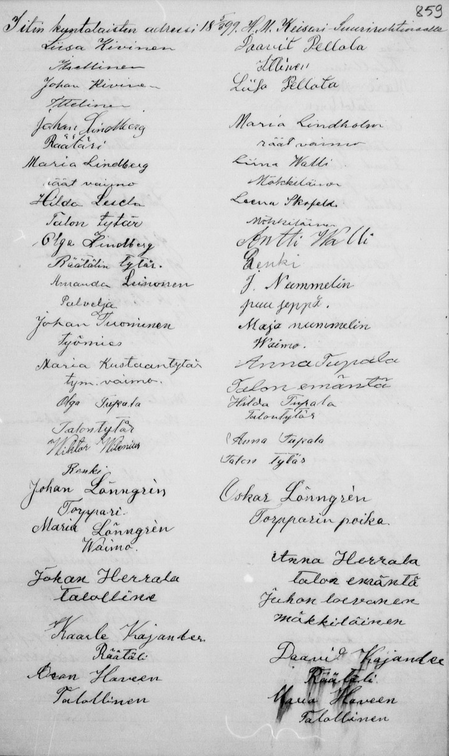 259
Iitin kuntalaisten adressi 18 5/3 99. H. M. Keisari-Suuriruhtinaalle
Liisa Kivinen
Itsellinen
Johan Kivinen
Ittelinen
Johan Lindberg
Räätäri
Maria Lindberg
räät vaimo
Hilda
Talon tytär
Olga Lindberg
Räätälin tytär.
Amanda Leinonen
Palvelja
Johan Tuominen
työmies
Maria Kustaantytär
työm. vaimo.
Olga Tupala
Talontytär
Wihtor Wilenius
Renki
Johan Lönngrén
Torppari.
Maria Lönngrén
Waimo.
Johan Herrala
talolline
Kaarle Kajander.
Räätäli
Haveen
Talollinen
Taavit Pellola
Ittlinen
Liisa Pellola
Maria Lindholm
räät vaimo
Liina Walli
Mökkiläinen
Leena
Mökkiläinen
Antti Walli
Renki
J. Nummelin
puu seppä.
Maja nummelin
Waimo.
Anna Tupala
Talon emäntä
Hilda Tupala
Talontytär
Anna Tupala
Talon tytär
Oskar Lönngrén
Torpparin poika
Anna Herrala
talon emäntä
Juhon
mäkkiläinen
Daavid Kajander
Räätäli
Maria Haveen
Talollinen